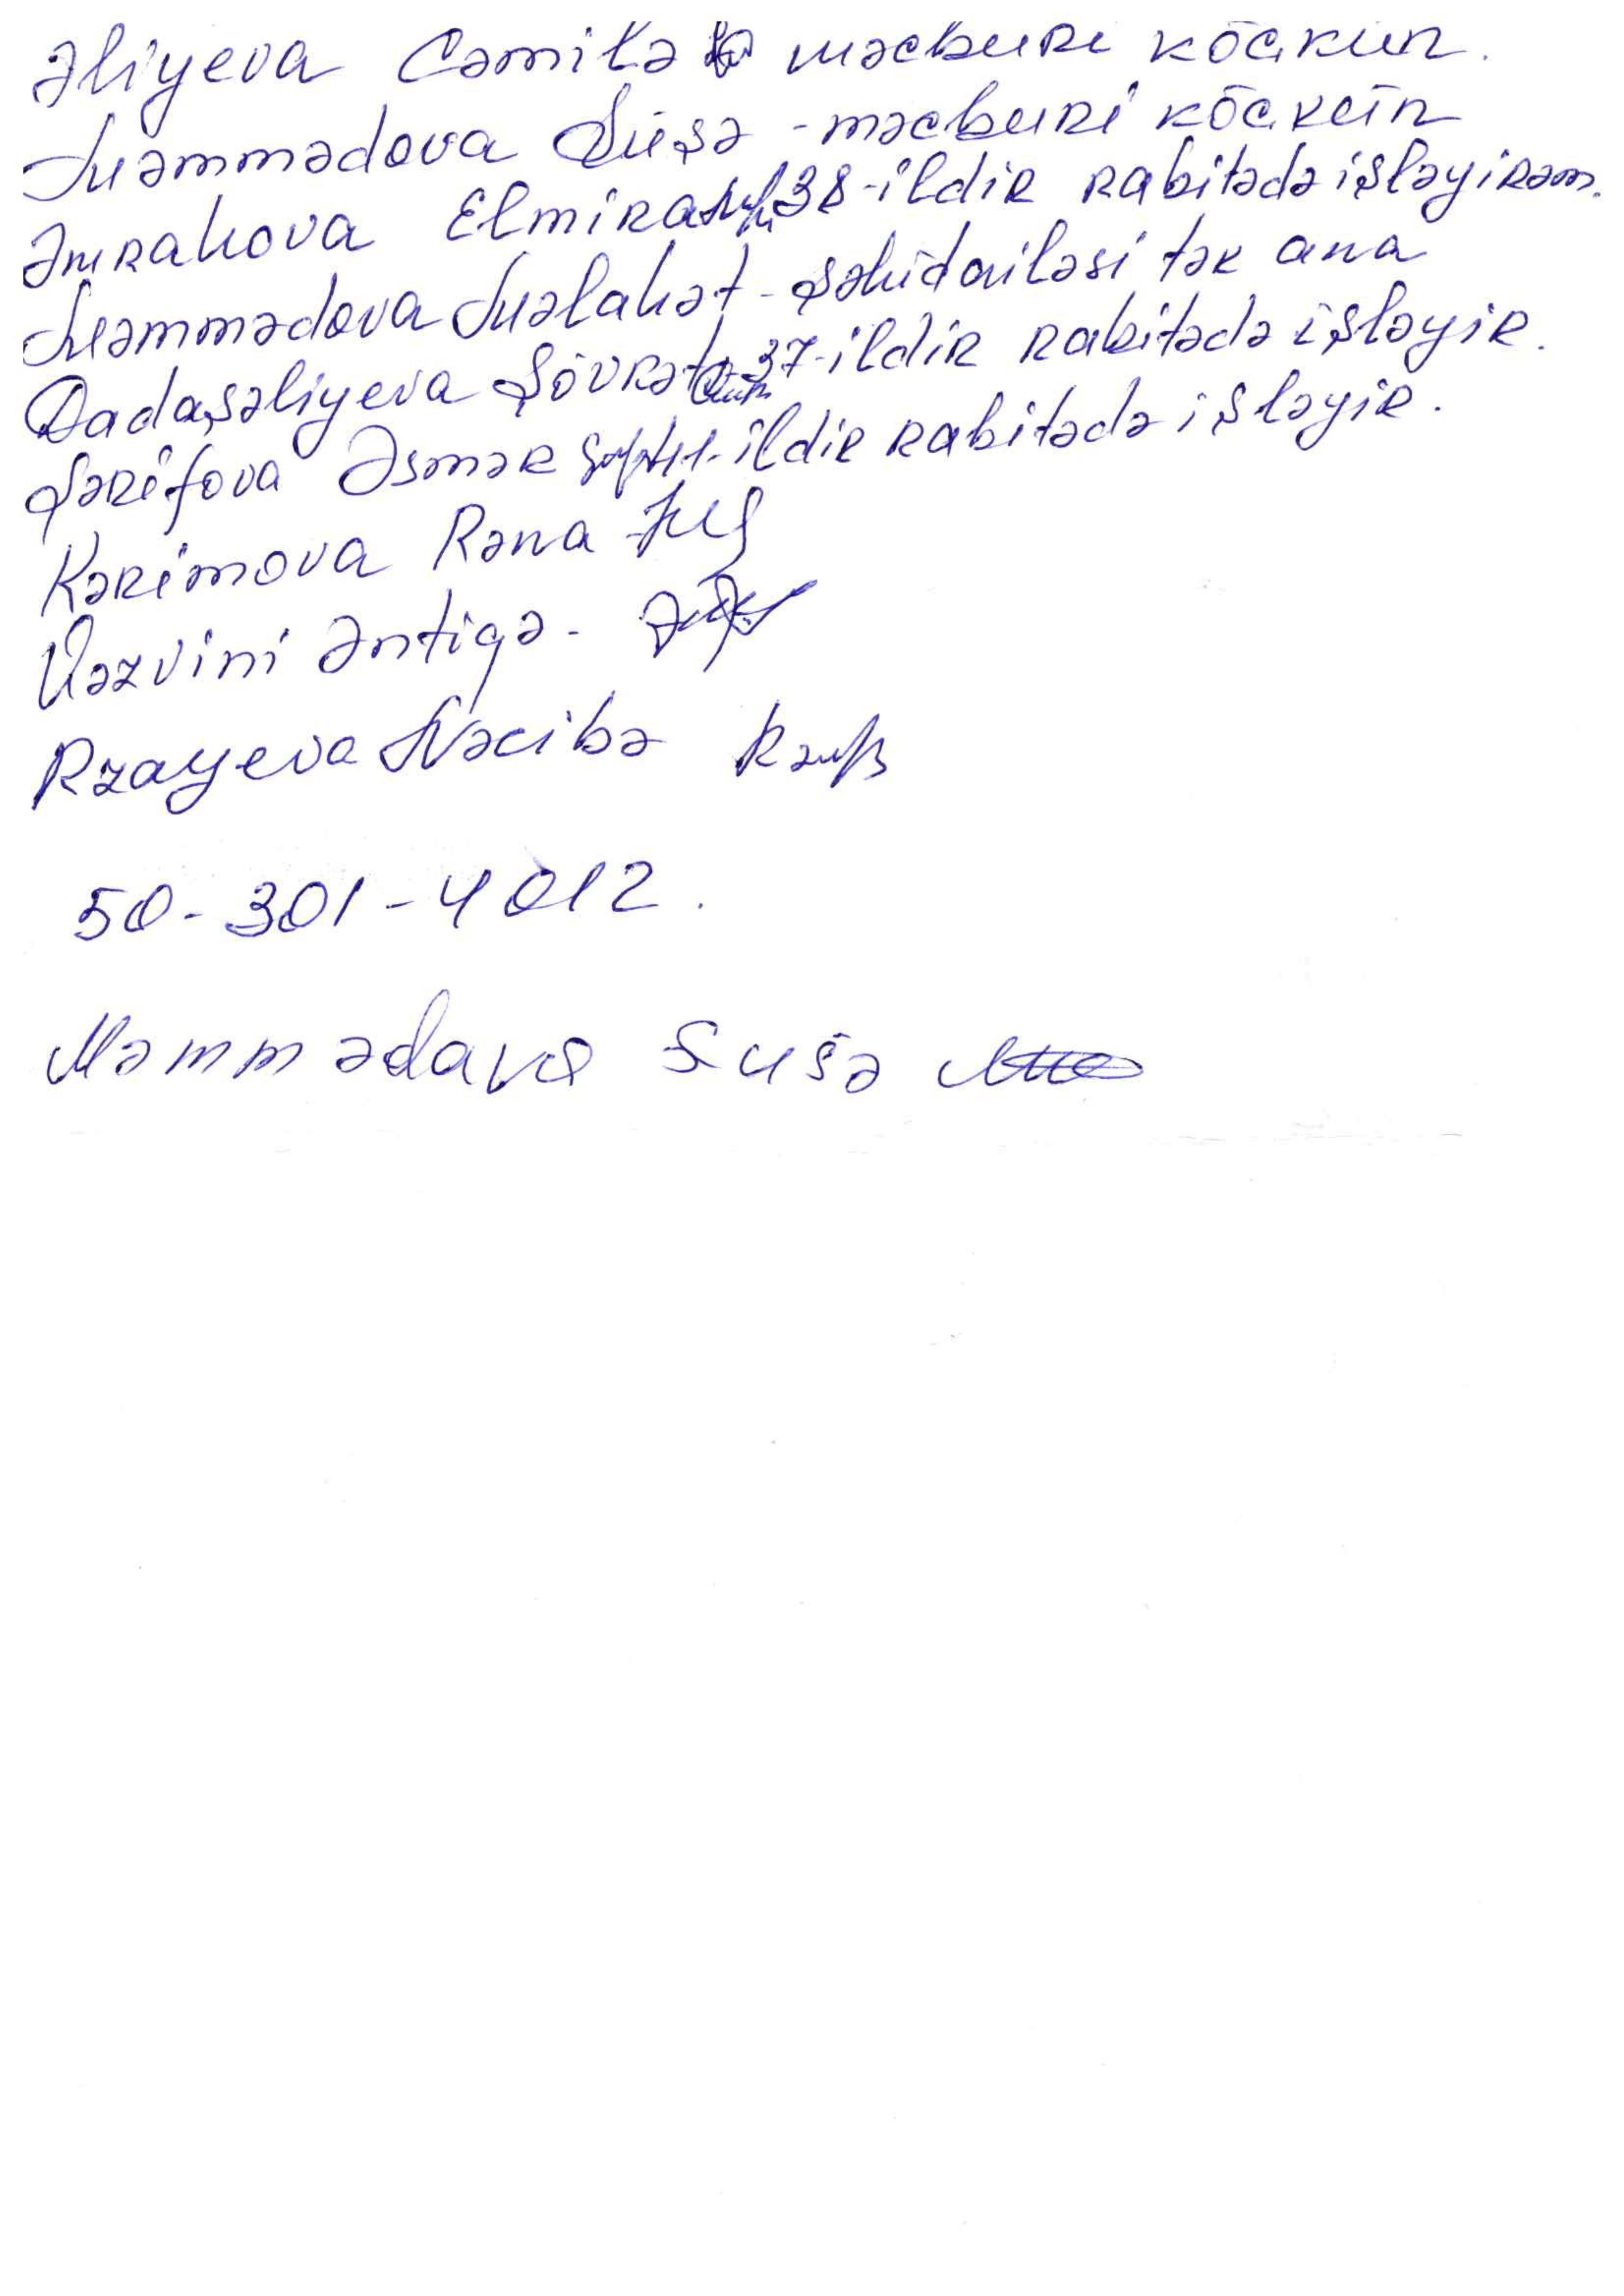 Əliyeva Cəmilə məcburi köçkün.
Məmmədova Şüşə - məcburi köçkün
Əmrahova Elmira 38-ildir rabitədə işləyirəm.
Məmmədova Məlahət - şəhid ailəsi tək ana
Dadaşəliyeva Şövkət 37-ildir rabitədə işləyir.
Şərifova Əsmər 41-ildir rabitədə işləyir.
Kərimova Rəna
Qəzvini Əntiqə -
Rzayeva Nəcibə
50-301-4012.
Məmmədava Şuşə